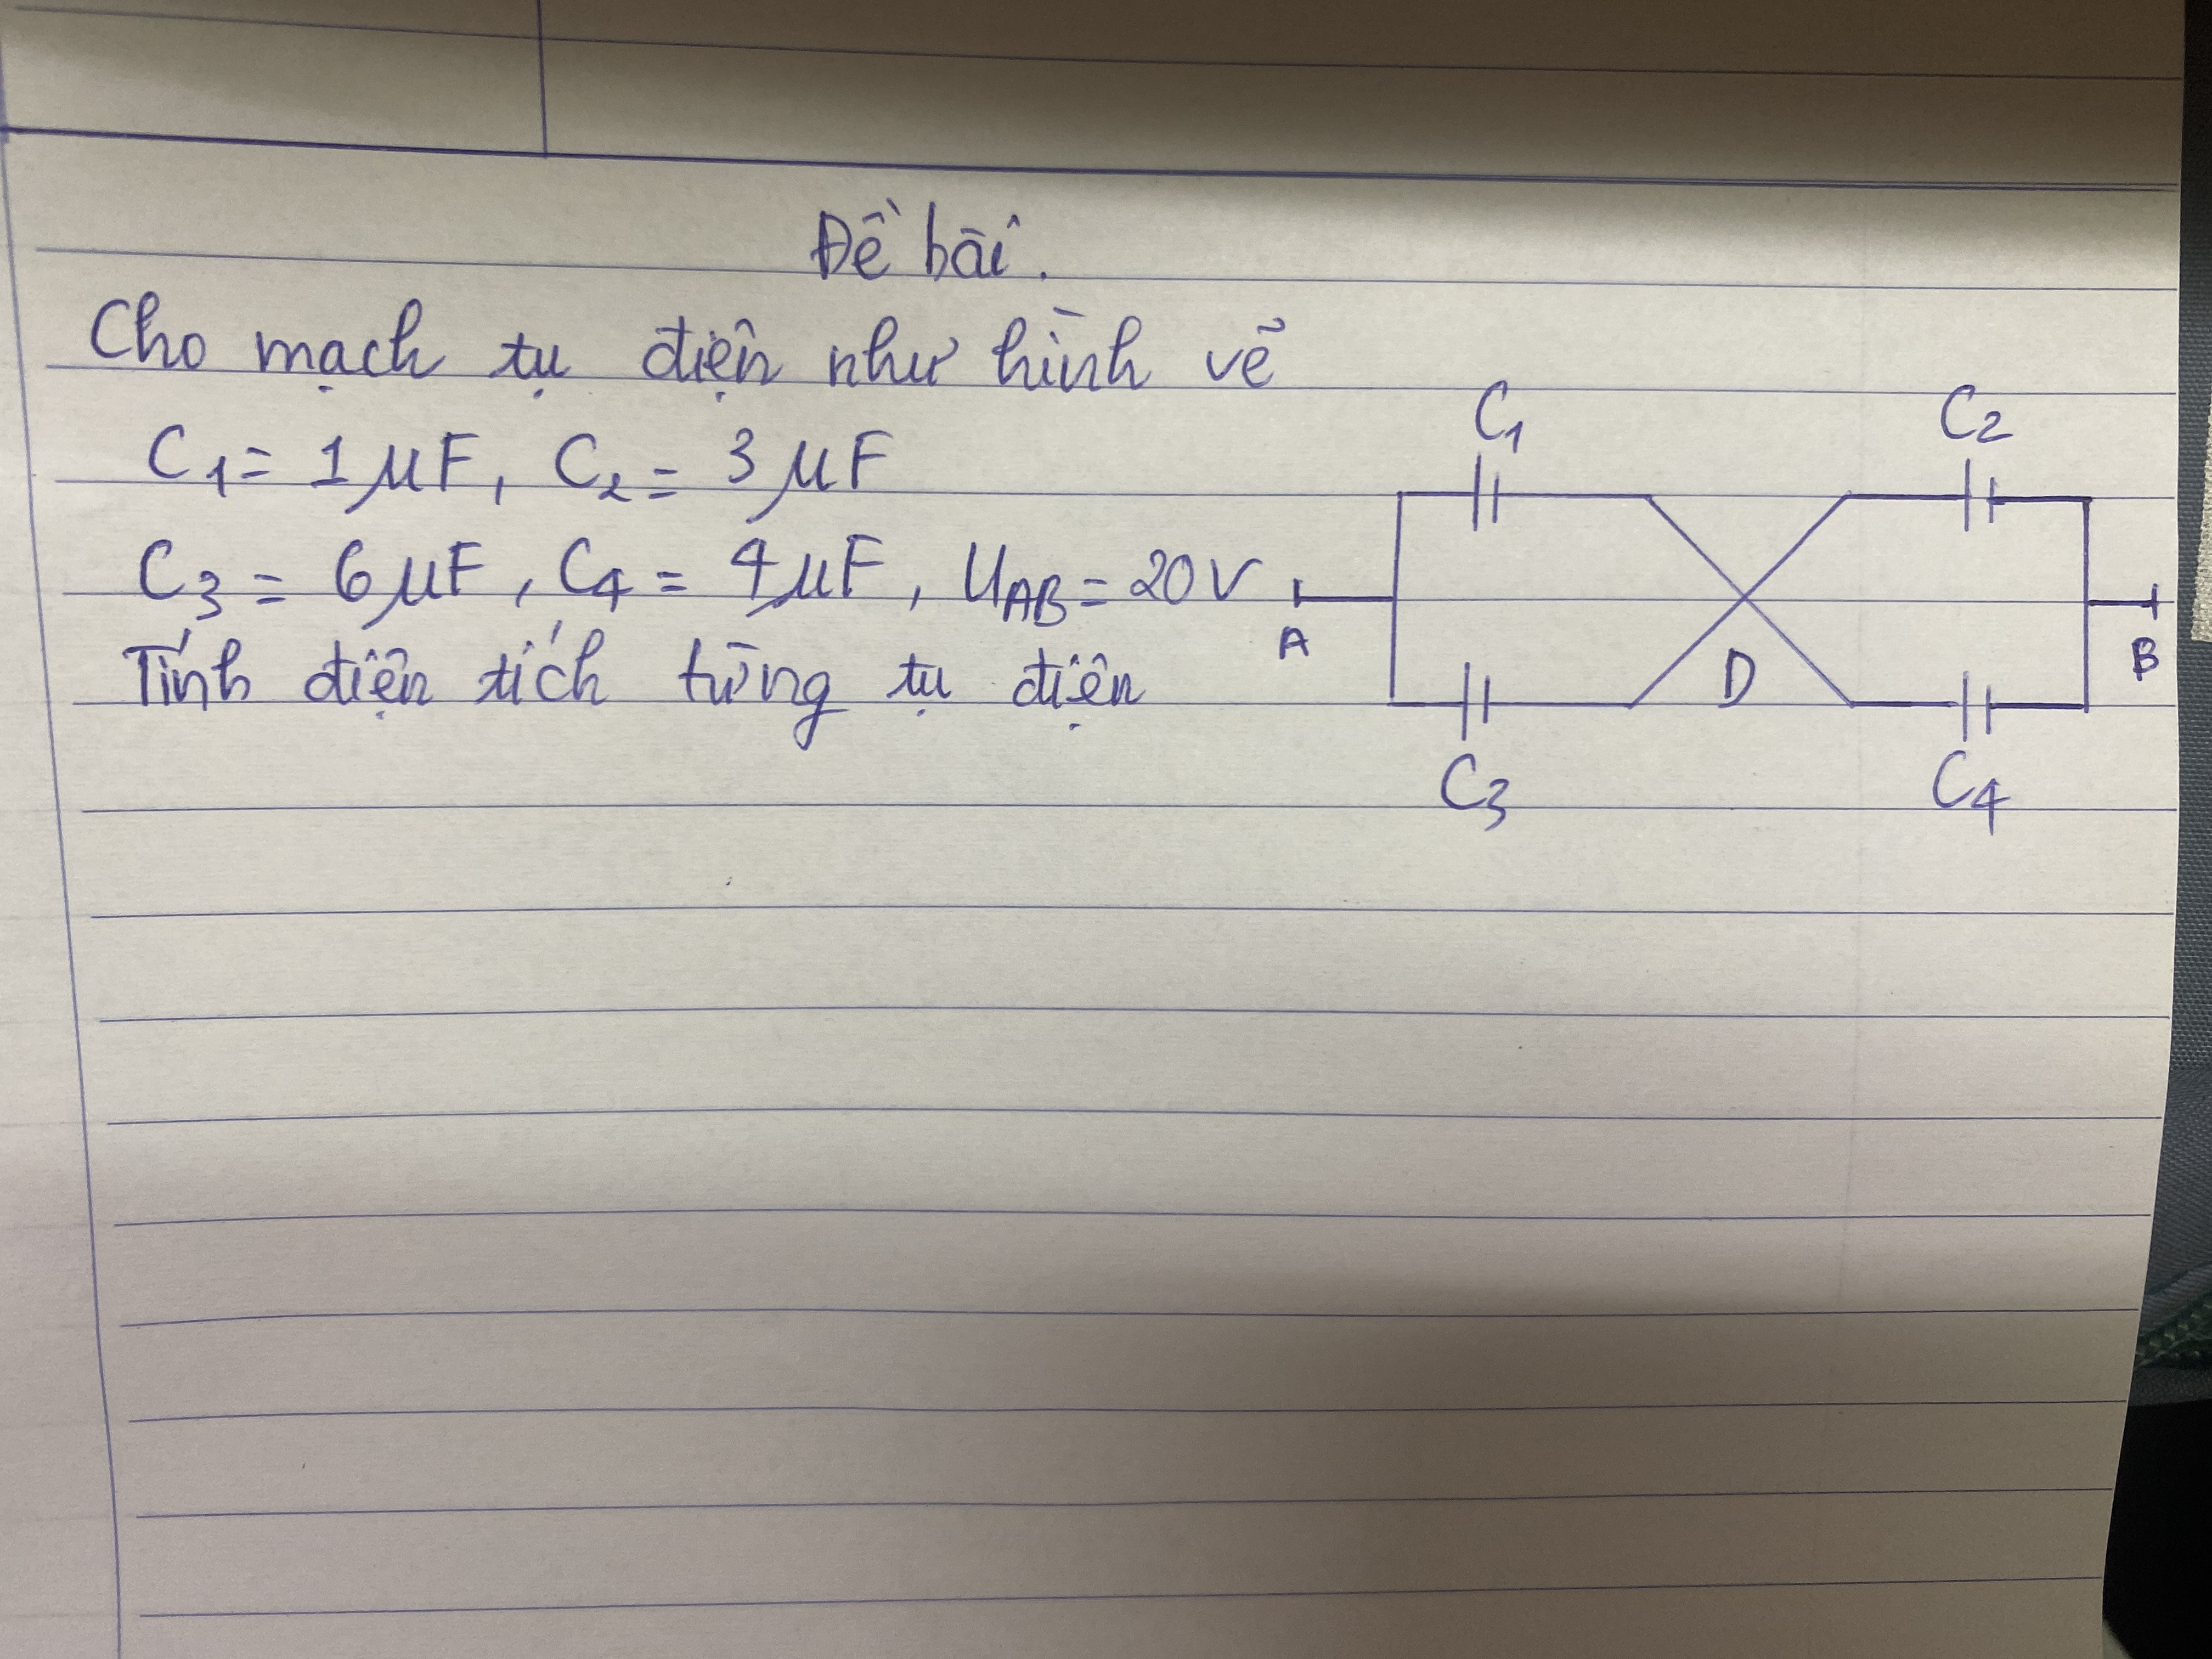 Đề bài.
Cho mạch tụ điện như hình vẽ
C₁ = 1 μF, C₂ = 3 μF
C₃ = 6 μF, C₄ = 4 μF, UAB = 20 V
Tính điện tích từng tụ điện
C₁ C₂
A D B
C₃ C₄